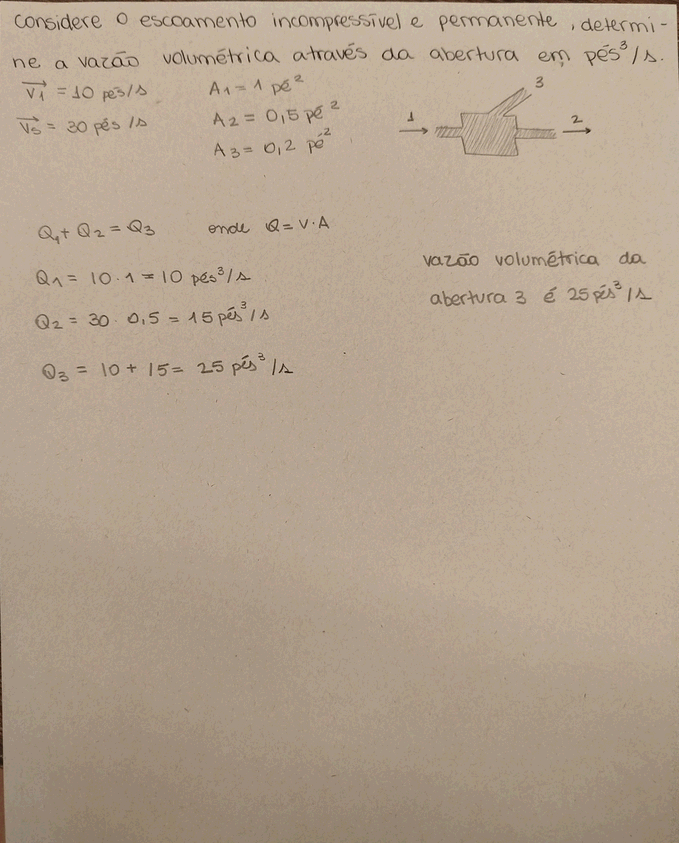 Considere o escoamento incompressível e permanente, determi-
ne a vazão volumétrica através da abertura em pés³/s.
V1 = 10 pés/s
A1 = 1 pé²
V3 = 30 pés/s
A2 = 0,5 pé²
A3 = 0,2 pé²
1
2
3
Q1 + Q2 = Q3 onde Q = V·A
Q1 = 10·1 = 10 pés³/s
Q2 = 30·0,5 = 15 pés³/s
Q3 = 10 + 15 = 25 pés³/s
vazão volumétrica da
abertura 3 é 25 pés³/s